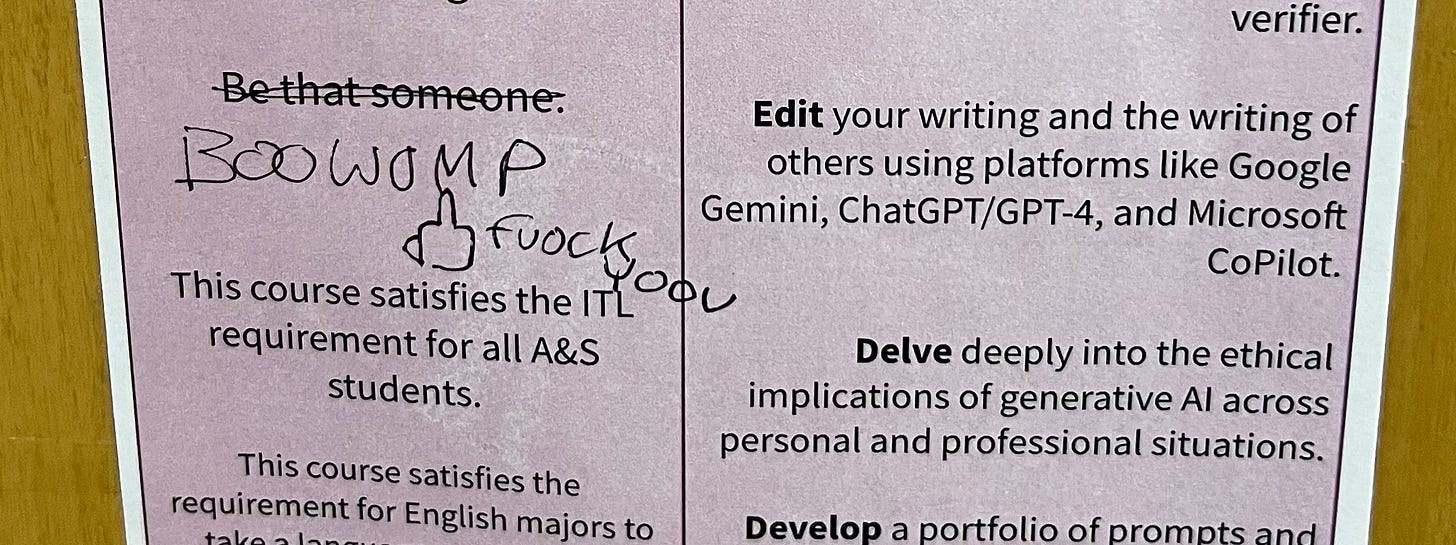 Be that someone.
BOOWOMP
FUOCK
YOOU
This course satisfies the ITL
requirement for all A&S
students.
This course satisfies the
requirement for English majors to
take a
verifier.
Edit your writing and the writing of
others using platforms like Google
Gemini, ChatGPT/GPT-4, and Microsoft
CoPilot.
Delve deeply into the ethical
implications of generative AI across
personal and professional situations.
Develop a portfolio of prompts and